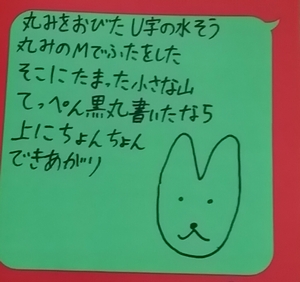 丸みをおびたU字の水そう
丸みのMでふたをした
そこにたまった小さな山
てっぺん黒丸書いたなら
上にちょんちょん
できあがり